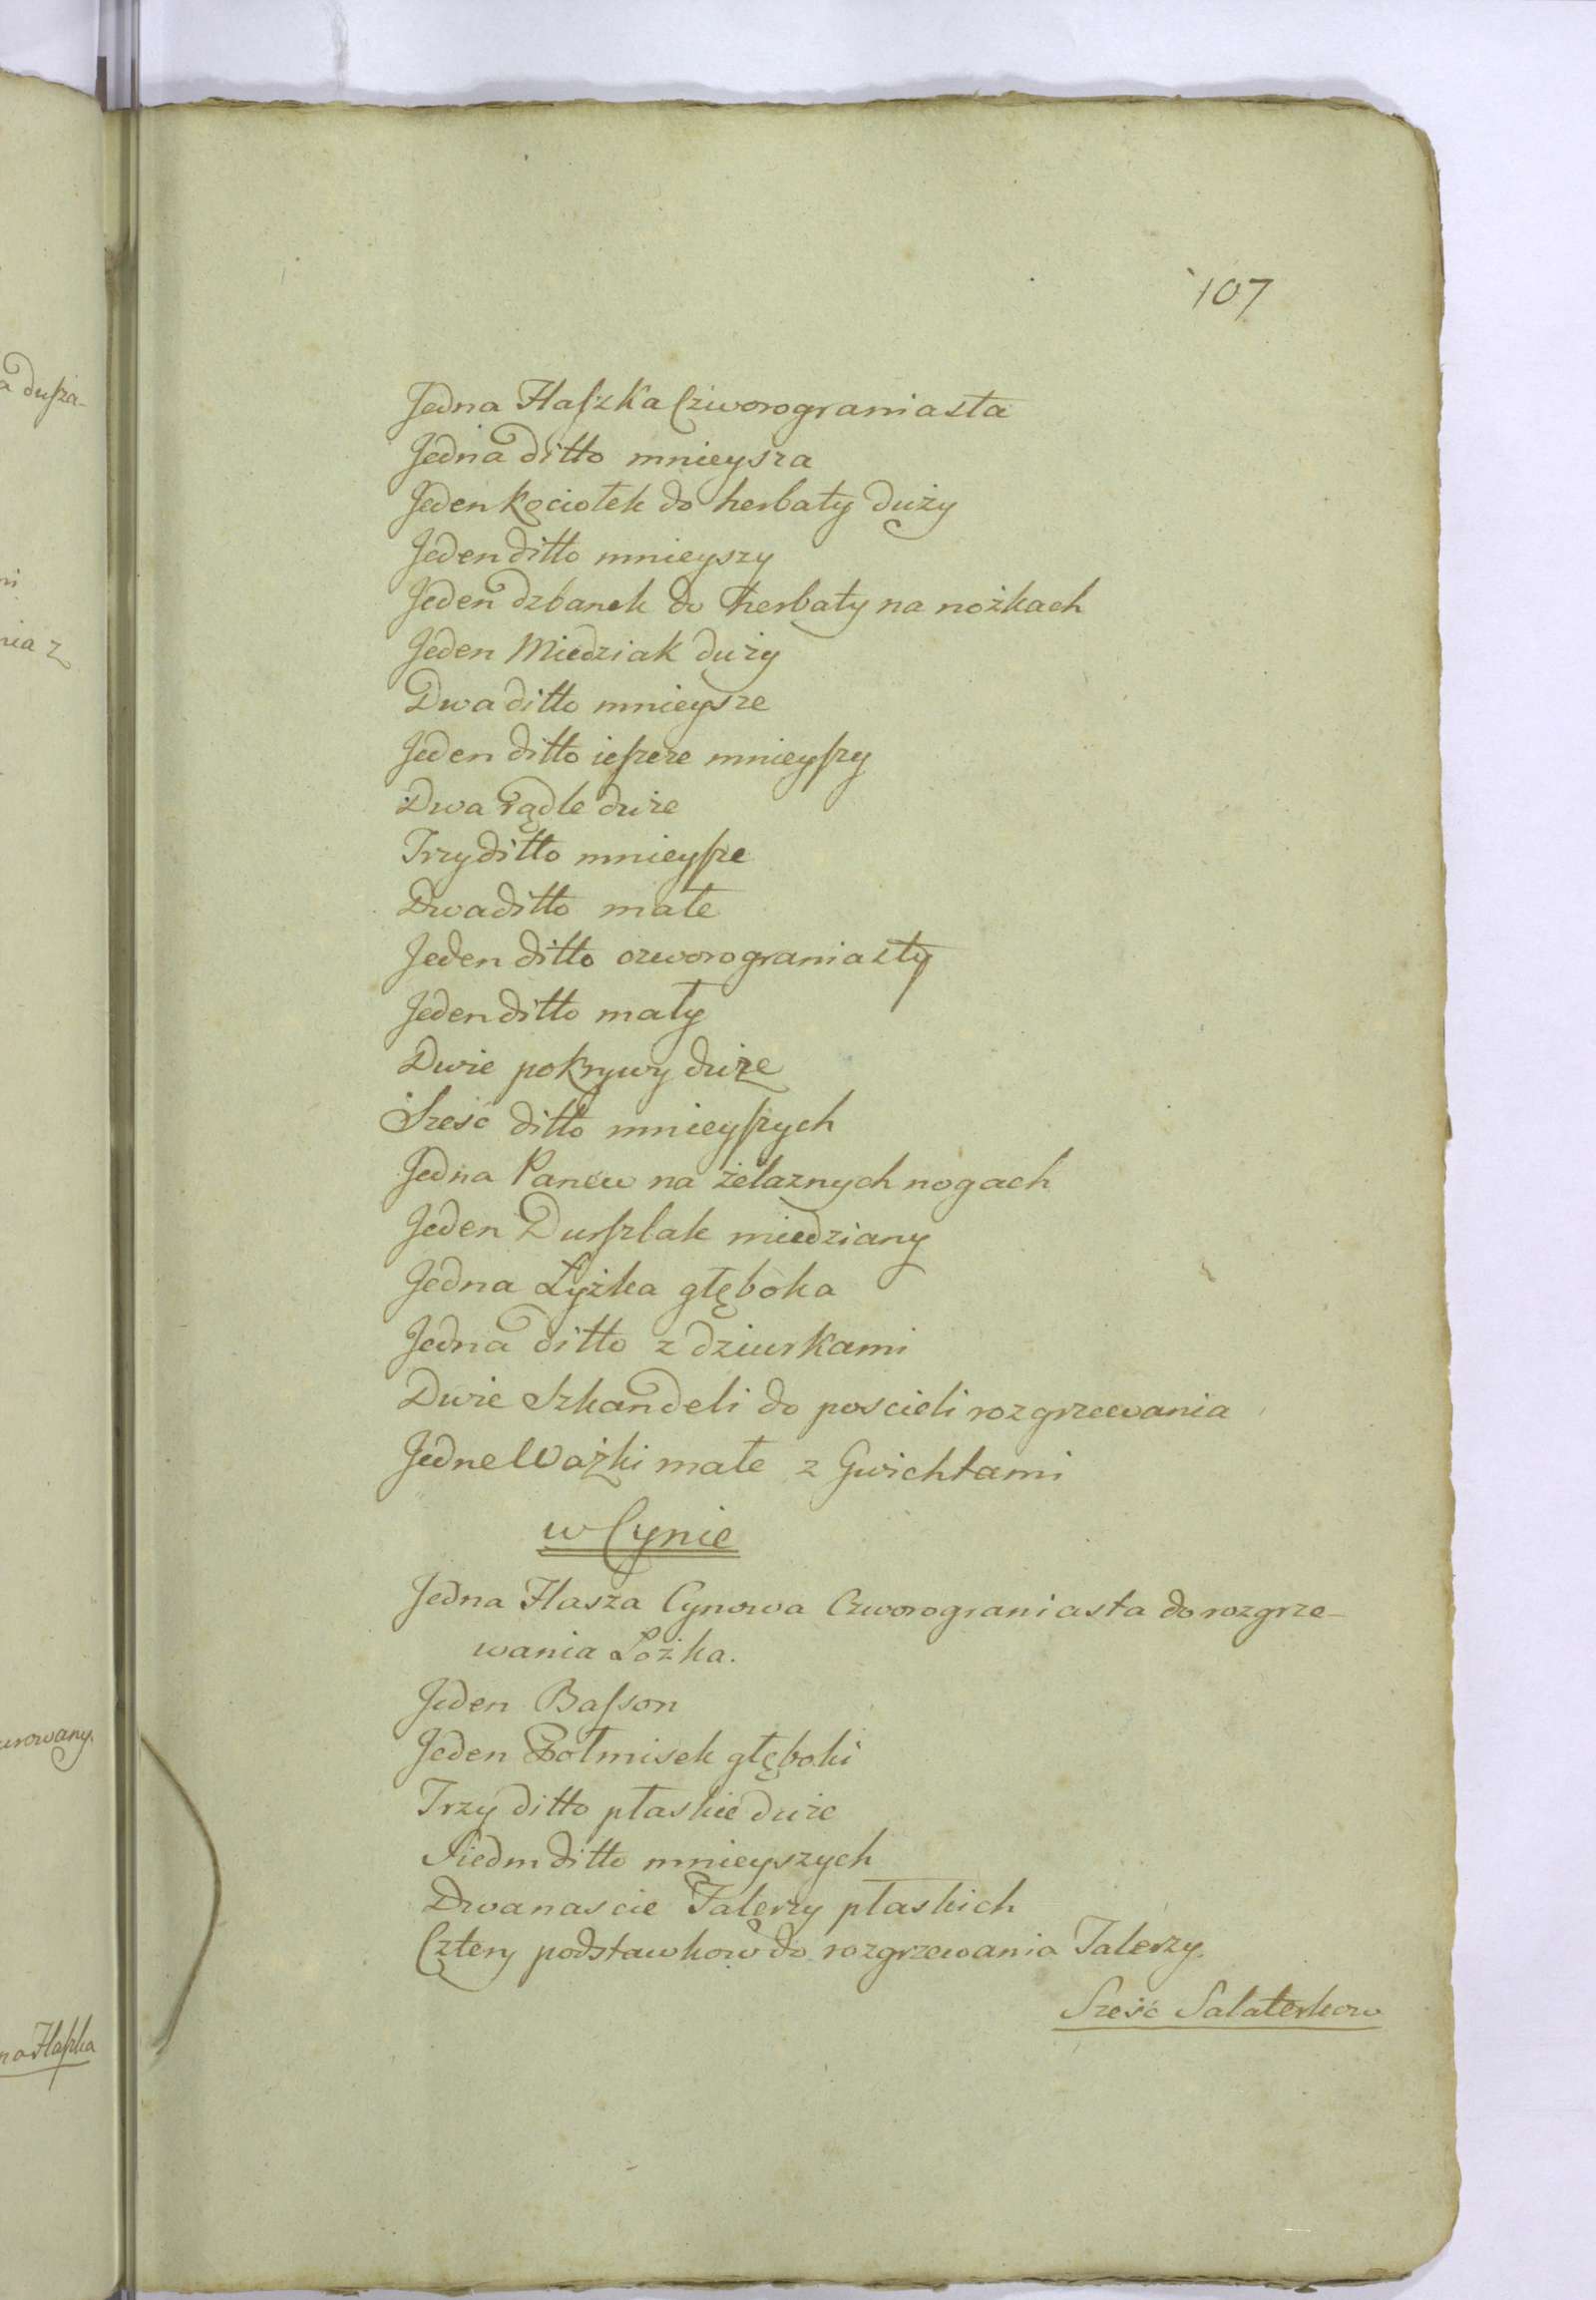 107
a dusza-
nia z
urowany.
na Flaszka
Jedna Flaszka Czworograniasta
Jedna ditto mnieysza
Jeden kociołek do herbaty duży
Jeden ditto mnieyszy
Jeden dzbanek do herbaty na nożkach
Jeden Miedziak duży
Dwa ditto mnieysze
Jeden ditto ieszcze mnieyszy
Dwa rądle duże
Trzy ditto mnieysze
Dwa ditto małe
Jeden ditto czworograniasty
Jeden ditto mały
Dwie pokrywy duże
Sześć ditto mnieyszych
Jedna Panew na żelaznych nogach
Jeden Durszlak miedziany
Jedna Łyżka głęboka
Jedna ditto z dziurkami
Dwie Szkandeli do poscieli rozgrzewania
Jedne Ważki małe z Gwichtami
w Cynie
Jedna Flasza Cynowa Czworograniasta do rozgrze-
wania Łożka.
Jeden Basson
Jeden Połmisek głęboki
Trzy ditto płaskie duże
Siedm ditto mnieyszych
Dwanascie Talerzy płaskich
Cztery podstawkow do rozgrzewania Talerzy.
Sześć Salaterkow